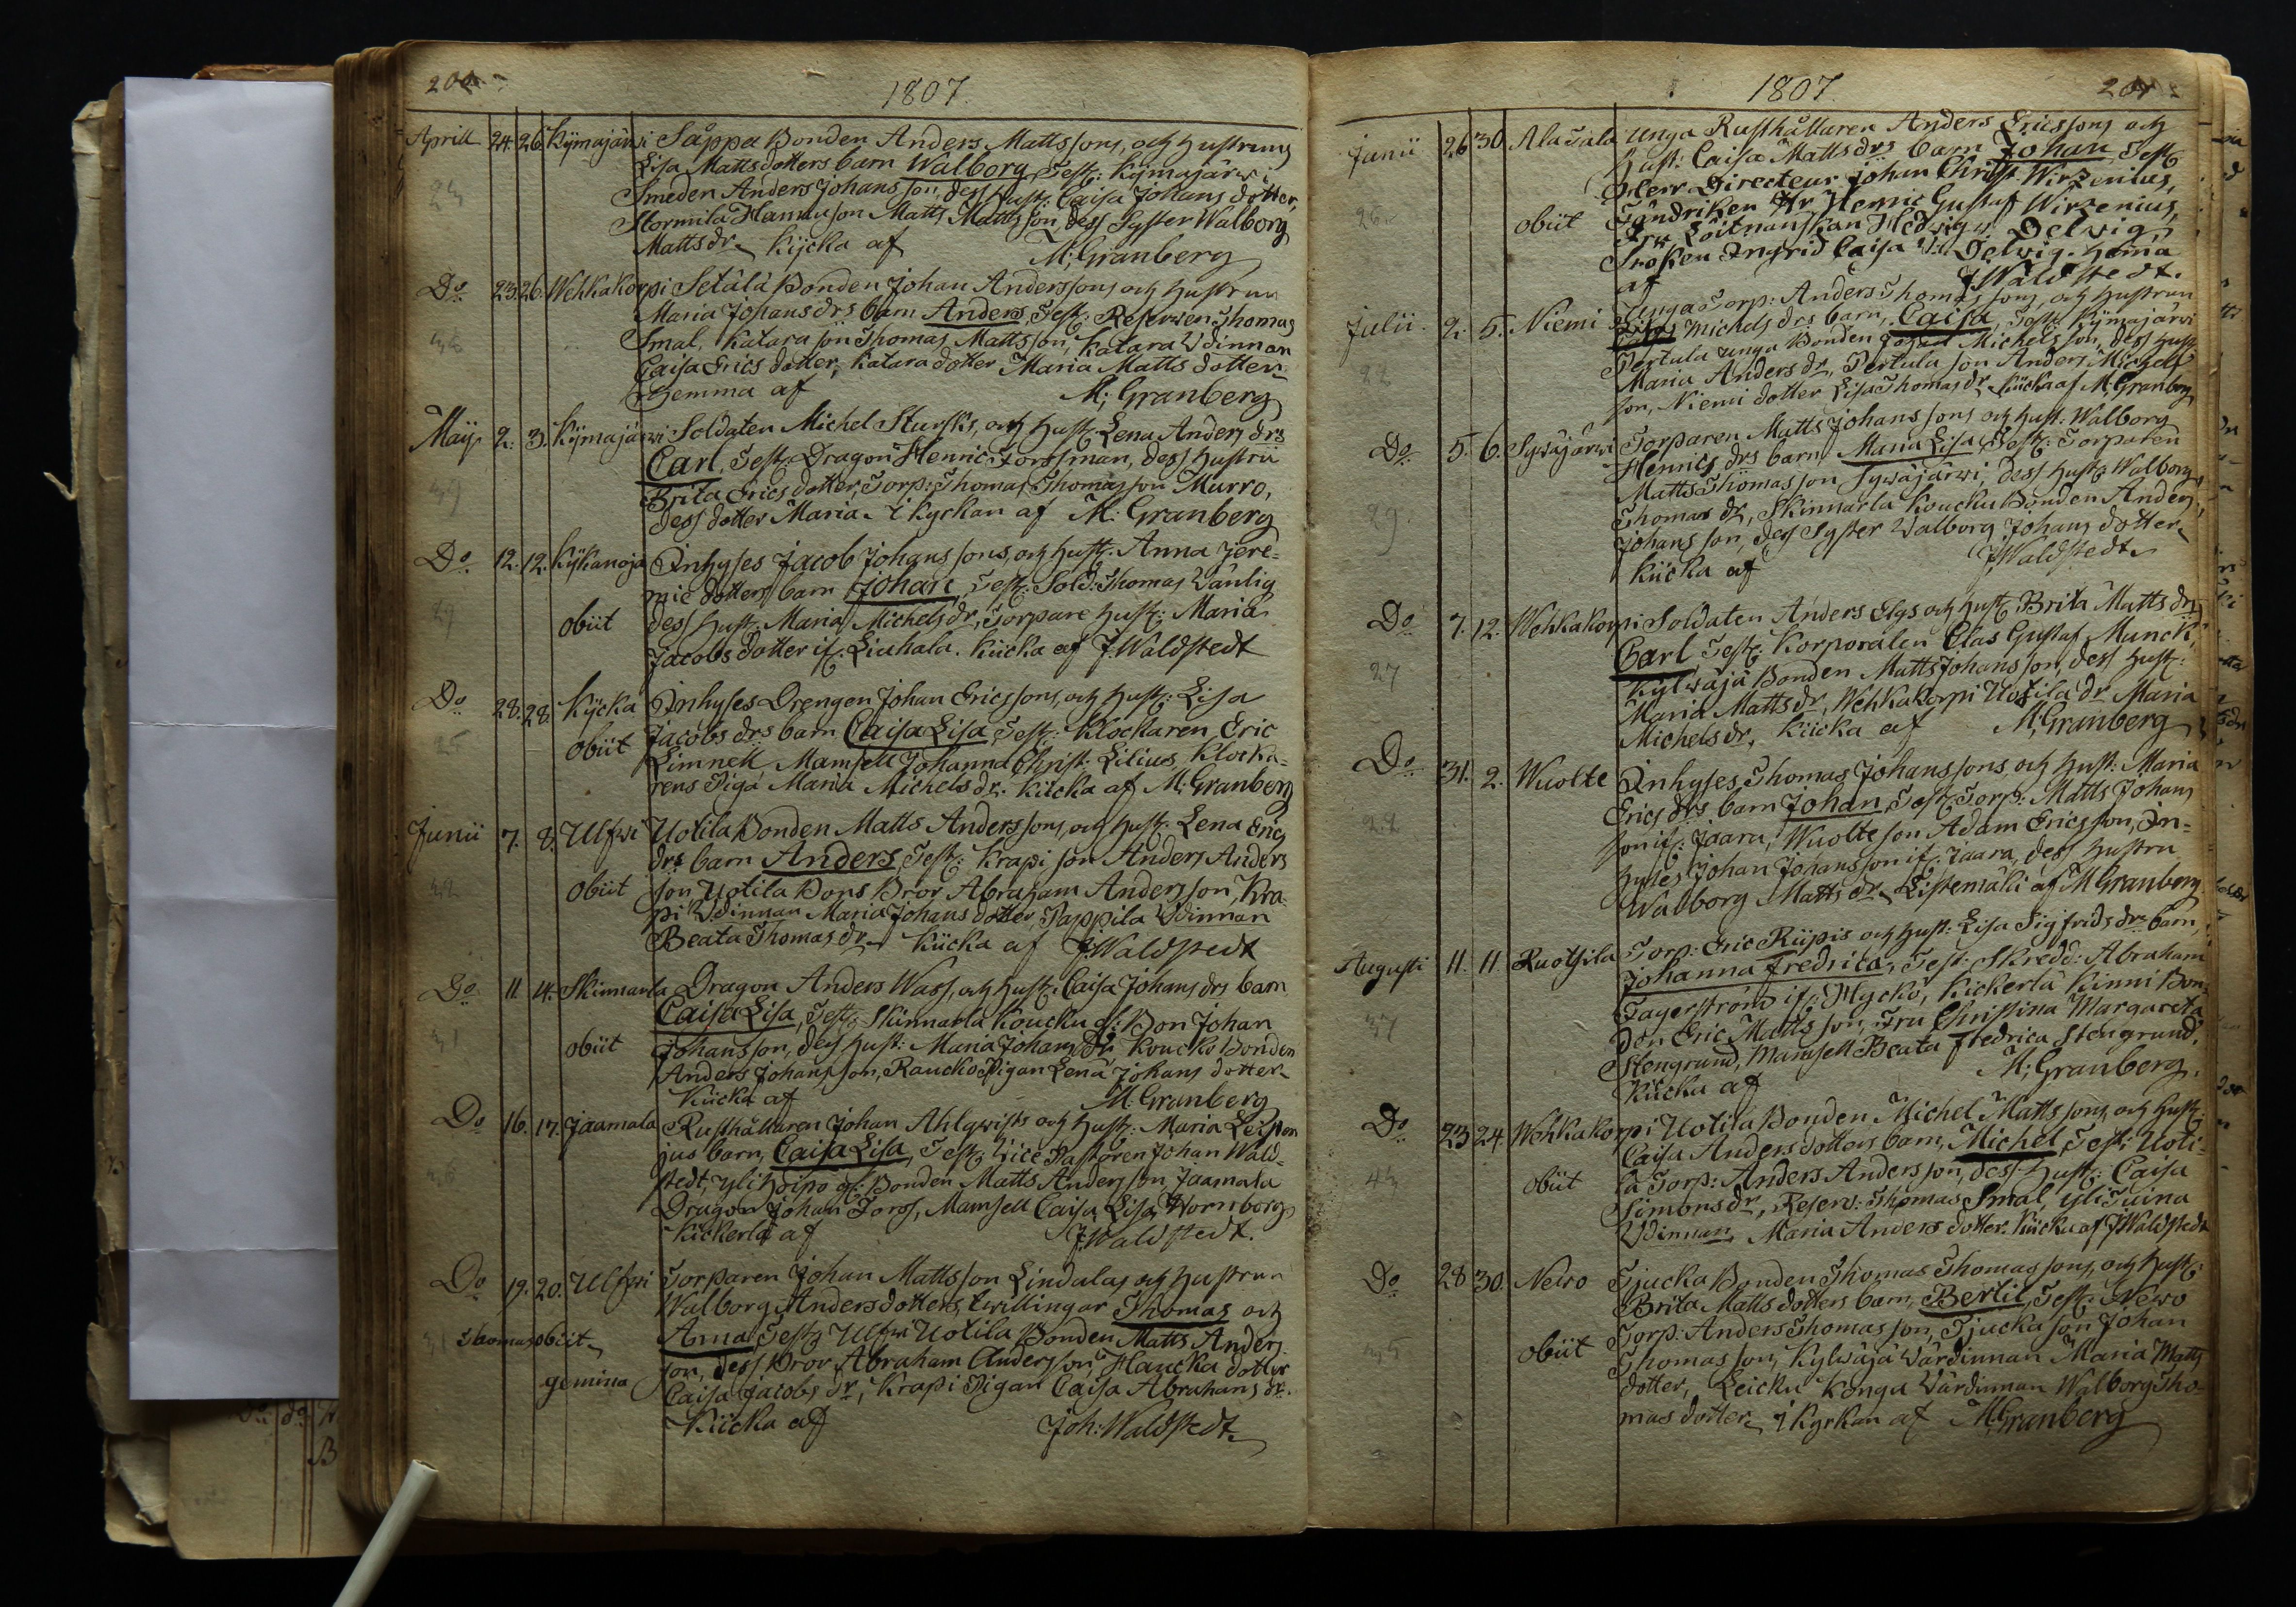 1807.
Aprill 24. 26. Kÿmajärwi Såppa Bonden Anders Mattssons, och hustruns
Lisa Mattsdotters barn Walborg, Test: Kÿmajärwi
Smeden Anders Johansson, dess hust: Caisa Johans dotter,
Matts Mattsson, dess Syster Walborg
Matts dr. Kÿcka af M: Granberg
Do 23. 26. Wehkakorpi Setälä Bonden Johan Anderssons och hustrun
Maria Johans drs barn Anders, Test: Reserven Thomas
Smal, Katara son Thomas Mattsson, Katara Wdinnan
Caisa Erics dotter, Katara dotter Maria Matts dotter
Hemma af M: Granberg
Maij 2. 3. Kÿmajärwi Soldaten Michel Sturks, och hust: Lena Anders drs
Carl, Test: Dragon Henric Forssman, dess hustru
Brita Erics dotter, Torp: Thomas Thomasson Murro,
dess dotter Maria. i kyckan af M: Granberg
Do 12. 12. Kÿkanoja Inhyses Jacob Johanssons, och hust: Anna Jere-
mie dotters barn Johan, Test: Sold: Thomas Wänlig
obiit dess hust: Maria Michels dr, Torpare hust: Maria
Jacobs dotter if: Liuhala. Kücka af J: Waldstedt
Do 28. 28. Kÿcka Inhyses Drengen Johan Ericssons, och hust: Lisa
obiit Jacobs drs barn Caisa Lisa, Test: Klockaren Eric
Limnell Mamsell Johanna Christ: Lilius, Klocka-
rens Piga Maria Michels dr. Kücka af M: Granberg
Junii 7. 8. Ulfwi Uotila Bonden Matts Anderssons, och hust: Lena Erics
drs barn Anders, Test: Krapi son Anders Anders
obiit son Uotila Bons Bror Abraham Andersson, Kra-
pi Wdinnan Maria Johans dotter, Pappila Wdinnan
Beata Thomas dr. Kücka af J: Waldstedt
Do 11. 14. Skinnarla Dragon Anders Wass, och hust: Caisa Johans drs barn
Caisa Lisa, Test: Skinnarla Koucku gl: Bon Johan
obiit Johansson, dess hust: Maria Johans dr Koucko Bonden
Anders Johansson, Raucko Pigan Lena Johans dotter
Kücka af M: Granberg
Do 16. 17. Jaamala Rusthållaren Johan Ahlqwists och hust: Maria
jus barn, Caisa Lisa, Test: Vice Pastoren Johan Wald-
stedt, gl: Bonden Matts Andersson, Jaamala
Dragon Johan Forss, Mamsell Caisa Lisa Wornborg
Kickerlä af J: Waldstedt.
Do 19. 20. Ulfwi Torparen Johan Mattsson Lindalas och hustrun
Walborg Andersdotters, twillingar Thomas och
Thomas obiit Anna, Test: Ulfwi Uotila Bonden Matts Anders-
son, dess Bror Abraham Andersson, Haucka dotter
gemina Caisa Jacobs dr, Krapi Pigan Caisa Abrahams dr.
Kücka af Joh: Waldstedt
1807.
Junii 26 30. Ala Tala Unga Rusthållaren Anders Ericssons och
hust: Caisa Matts drs barn Johan, Test:
Herr Directeur Johan Christ Wirzenius,
obiit Fändriken Hr Henric Gustaf Wirzenius,
Fru Löitnanskan Hedwig v. Delwig,
Fröken Ingrid Caisa v. Delwig. hema
af J Waldstedt.
Julii. 2. 5. Niemi Unga Torp: Anders Thomassons, och hustrun
Michels drs barn, Caisa, Test: Kÿmajärwi
Pertula unga Bonden Johan Michelsson, dess hust
Maria Anders dr, Pertula son Anders Michels
son, Niemi dotter Lisa Thomas dr, Kücka af M: Granberg
Do 5. 6. Sywäjärwi Torparen Matts Johanssons och hust: Walborg
Henrics drs barn Maria Lisa, Test: Torparen
Matts Thomasson Sywäjärwi, dess hust: Walborg
Thomas dr, Skinnarla Koucku Bonden Anders
Johansson, dess Syster Walborg Johans dotter
Kücka af J: Waldstedt
Do 7. 12. Wehkakorpi Soldaten Anders Elgs och hust: Brita Matts drs
Carl Test: Korporalen Clas Gustaf Munck,
Kylwäjä Bonden Matts Johansson, dess hust:
Maria Matts dr, Wehkakorpi Uotila dr Maria
Michels dr, Kücka af M: Granberg
Do 31. 2. Wuolte Inhyses Thomas Johanssons, och hust: Maria
Erics drs barn Johan, Test: Torp: Matts Johans
son if: Jaara, Wuolte son Adam Ericsson, In-
hyses Johan Johansson if: Jaara, dess hustru
Walborg Matts dr. Listemäki af M Granberg
Augusti 11. 11. Ruotsila Torp: Eric Riipis och hust: Lisa Sigfrids drs barn
Johanna Fredrica, Test: Skredd: Abraham
Fagerström if: Myckö, Kickerlä Kinni Bon-
den Eric Mattsson, Fru Christina Margareta
Stengrund, Mamsell Beata Fredrica Stengrund,
Kücka af M: Granberg.
Do 23 24. Wehkakorpi Uotila Bonden Michel Mattssons, och hust:
Caisa Anders dotters barn, Michel, Test: Uoti-
obiit la Torp: Anders Andersson, dess hust: Caisa
Simons dr, Reserv: Thomas Smal,
Wdinnan, Maria Anders dotter. Kücka af J Waldstedt
Do 28 30. Newo Tjucka Bonden Thomas Thomassons, och hust:
Brita Matts dotters barn, Bertil, Test: Newo
Torp: Anders Thomasson, Tjucka son Johan
obiit Thomasson, Kylwäjä Wärdinnan Maria Matts
dotter, Leicku Konga Wärdinnan Walborg Tho-
mas dotter. i kyrkan af M: Granberg